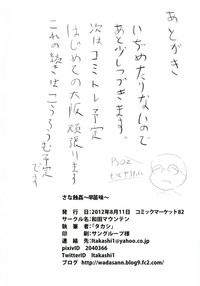 あとがき
いぢめたりないので
あと少しつづきます。
次はコミトレ予定
はじめての大阪頑張ります
これの続きはこうろうむ予定
です
さな触姦～早苗味～
発　行　日：2012年8月11日　コミックマーケット82
サークル名：和田マウンテン
執　筆　者：「タカシ」
印　　　刷：サングループ様
連　絡　先：ltakashi1@yahoo.co.jp
pixivID　2040366
TwitterID　ltakashi1
ブログ　http://wadasann.blog9.fc2.com/